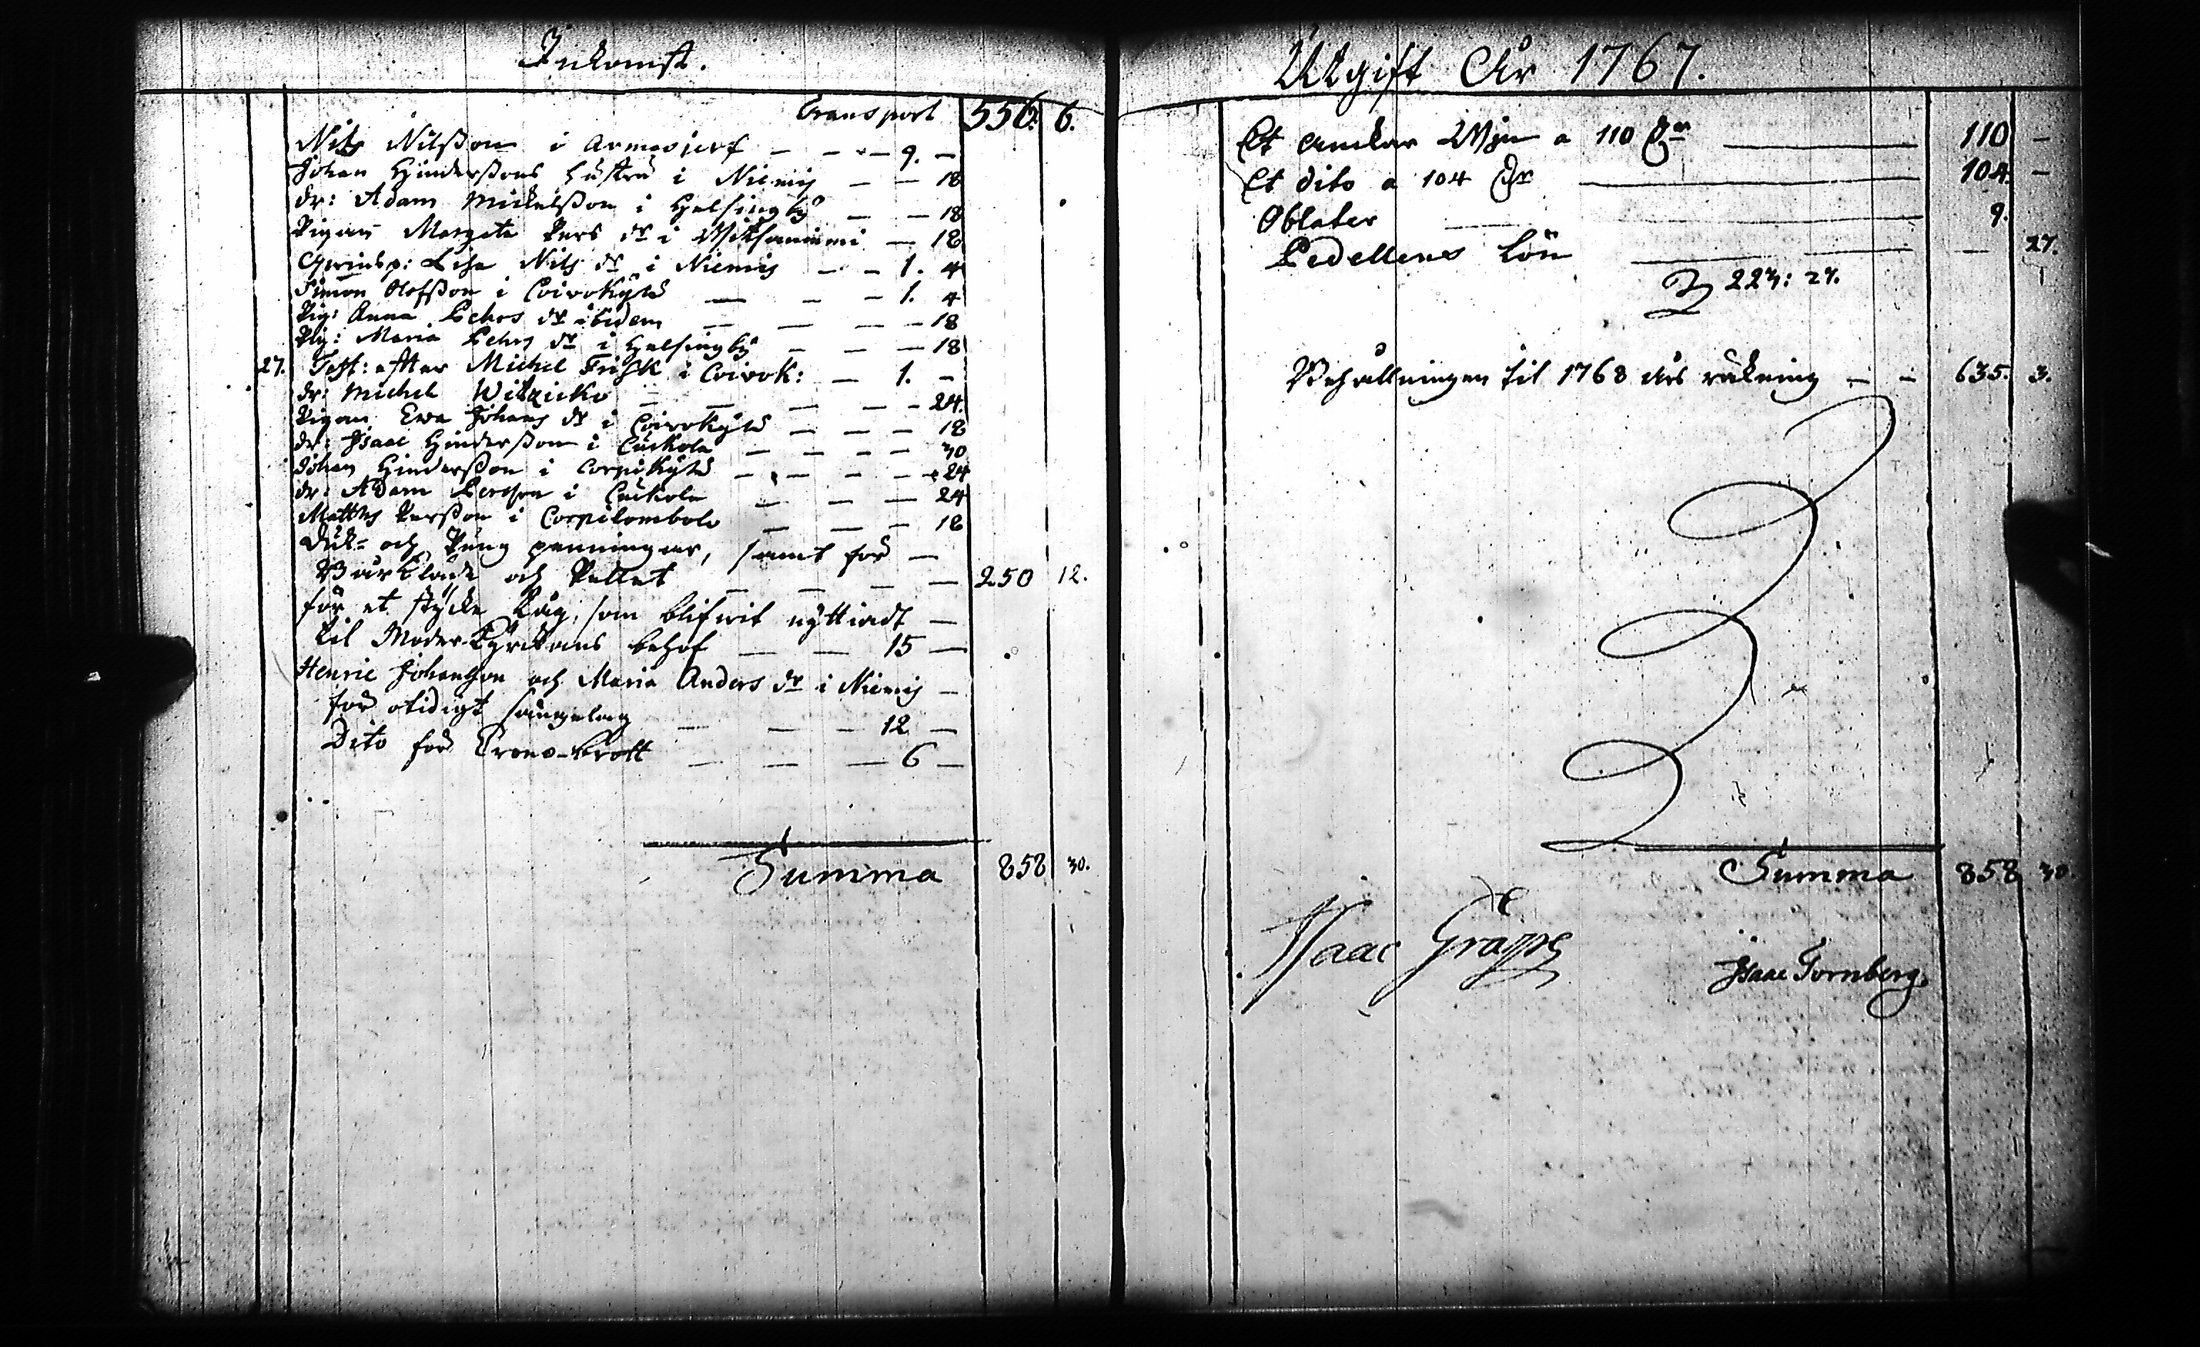 Inkomst.
Transport 556. 6.
Nils Nilsson i Armasjerf — — — 9. —
Johan Hindersons hustru i Niemis — — 18
dr: Adam Mickelsson i Helsingby — — 18
Pigan Margeta Pers dr i — 18
Lisa Nils dr i Niemis — — 1. 4
Simon Olofsson i Coivokylä — — — 1. 4
Pig: Anna Pehrs dr ibidem — — — 18
Pig: Maria Pehrs dr i Helsingby — — — 18
27. Test: efter Michel Frisk i Coivok: — 1. —
dr: Michel — — — — 24.
Pigan Ewa Johans dr i Coivokylä — — — 18
dr: Isaac Hindersson i Cuckola — — — — 30
Johan Hindersson i Corpikylä — — — — 24
dr: Adam Persson i Cuckola — — — 24
Matths Persson i Corpilombolo — — — 18
och Pung penningar, samt för —
Bårkläde och Pellet — — — — 250 12.
för et stycke Råg, som blifwit nyttiadt —
til Moder-Kyrckans behof — — 15 —
Henric Johansson och Maria Anders dr i Niemis —
för otidigt sängelag — — — 12 —
Dito för Crono-brott — — — 6 —
Summa 858 30.
Utgift År 1767.
Et Anckar Wijn a 110 Dr — 110 —
Et dito a 104 Dr — 104. —
Oblater — 9.
Pedellens Lön — — 27.
223: 27.
Behållningen til 1768 års räkning — — 635. 3.
Summa 858 30.
Isaac Grape
Isaac Tornberg.